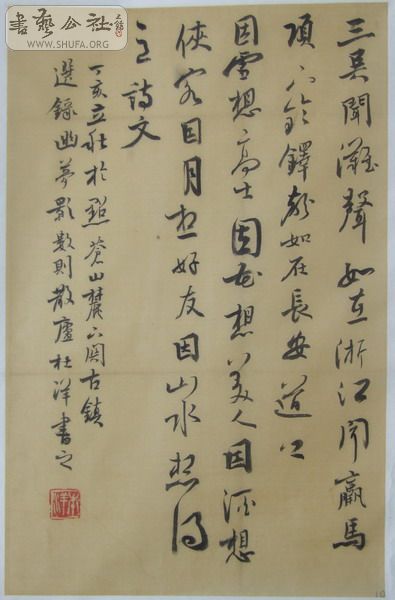 書藝公社
WWW.SHUFA.ORG
三吳聞灘聲如在浙江聞羸馬
項下鈴鐸聲如在長安道上
因雪想高士因花想美人因酒想
俠客因月想好友因山水想得
意詩文
丁亥立秋於點蒼山麓下関古鎮
選錄幽夢影數則散廬杜洋書之